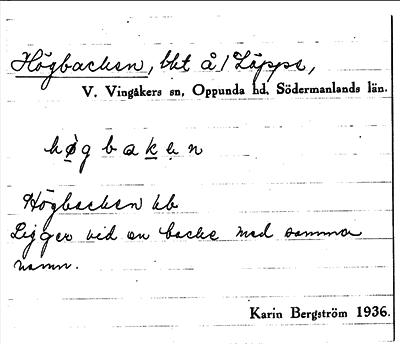 Högbacken, bkt å 1 Läppe,
V. Vingåkers sn, Oppunda hd, Södermanlands län.
høgbakęn
Högbacken hb
Ligger vid en backe med samma
namn.
Karin Bergström 1936.